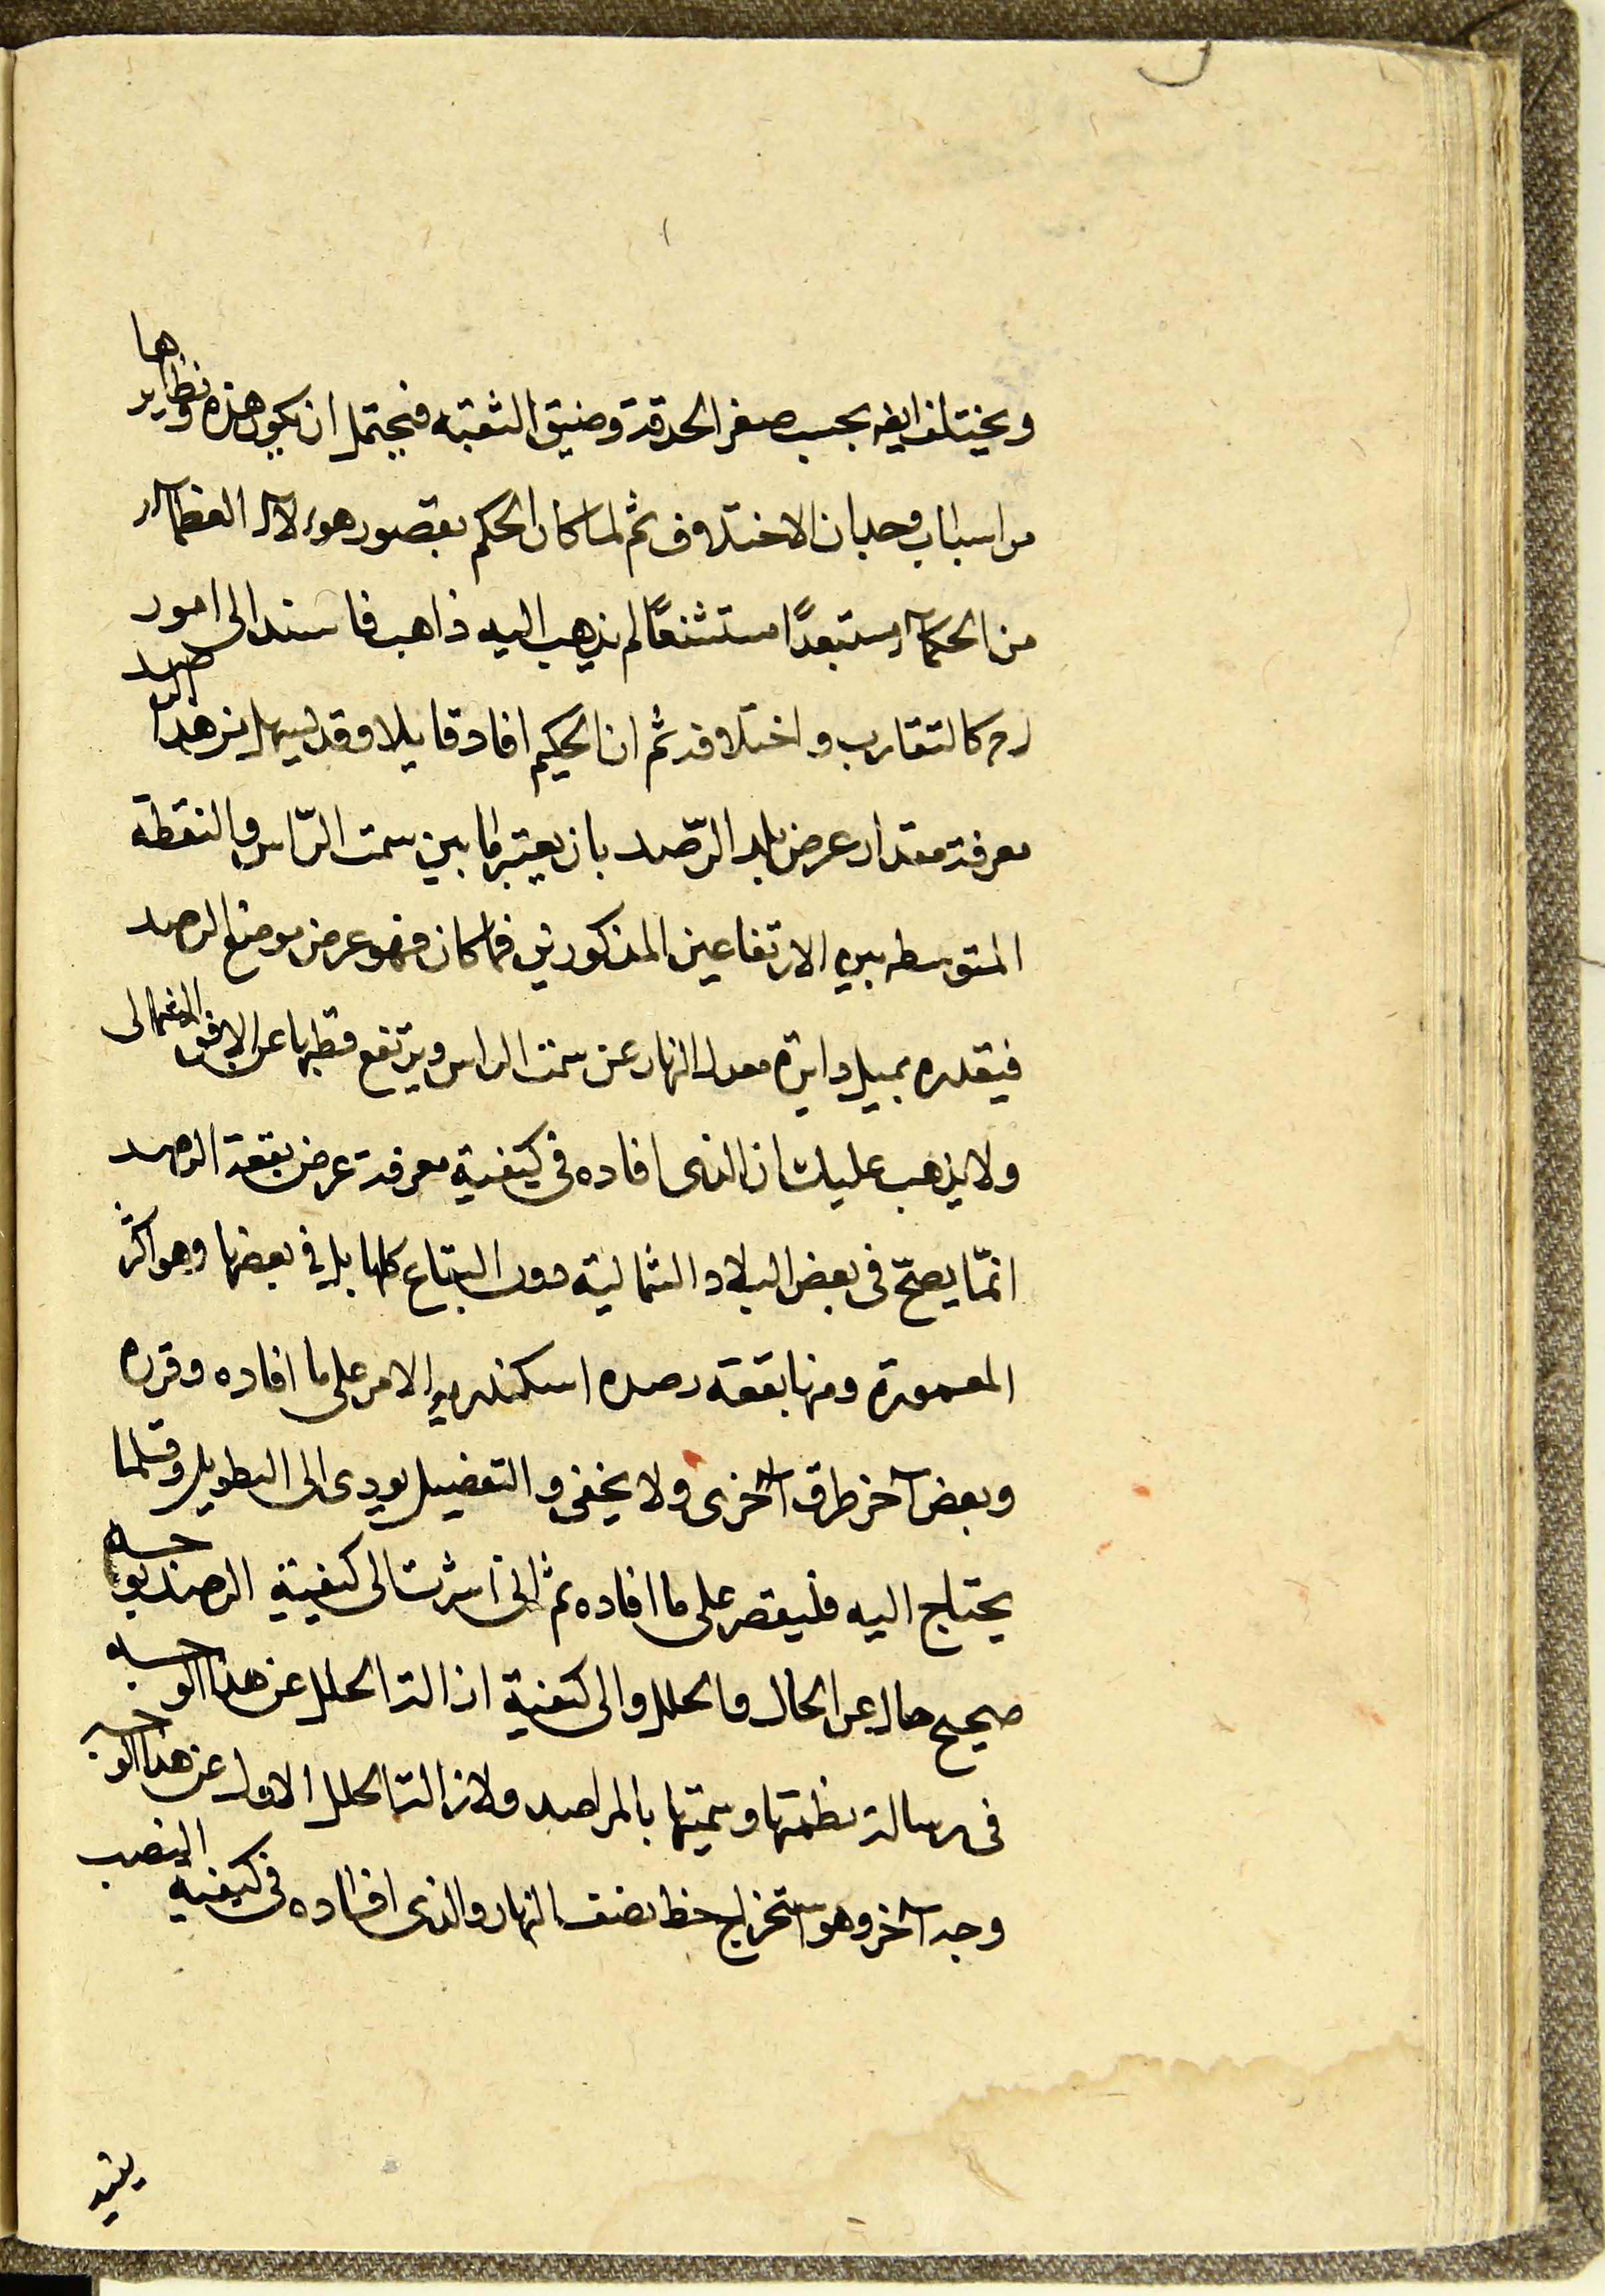 ويختلف ايضا بحسب صغر الحدقة وضيق الثقبه فيحتمل ان يكون هذه ونظايرها
من اسباب وجدان الاختلاف ثم لما كان الحكم بقصور هؤلاء العظماء
من الحكماء مستبعدًا مستشنعًا لم يذهب اليه ذاهب فاسند الى امور
كالتقارب واختلافه ثم ان الحكيم افاد قايلا وقد يسهل من هذا الرصد
معرفة مقدار عرض بلد الرّصد بان يعتبر ما بين سمت الرّاس والنقطة
المتوسطه بين الارتفاعين المذكورين فما كان فهو عرض موضع الرصد
فبقدره يميل دايرة معدل النهار عن سمت الراس ويرتفع قطبها عن الافق الشمالى
ولا يذهب عليك ان الذى افاده فى كيفية معرفة عرض بقعة الرصد
انمّا يصحّ فى بعض البلاد الشمالية دون البقاع كلها بل فى بعضها وهو اكثر
المعمورة ومنها بقعة رصده اسكندريه الامر على ما افاده وقرره
وبعض آخر طرق اخرى ولا يخفى والتفصيل يودى الى التطويل وقلما
يحتاج اليه فليقصر على ما افاده ثم انى اشرت الى كيفية الرصد بوجه
صحيح خال عن الخلل والى كيفية ازالة الخلل عن هذا الوجه
فى رسالة نظمتها وسميتها بالمراصد ولازالة الخلل الاول عن هذا الوجه
وجه آخر وهو استخراج خط نصف النهار والذى افاده فى كيفية النصب